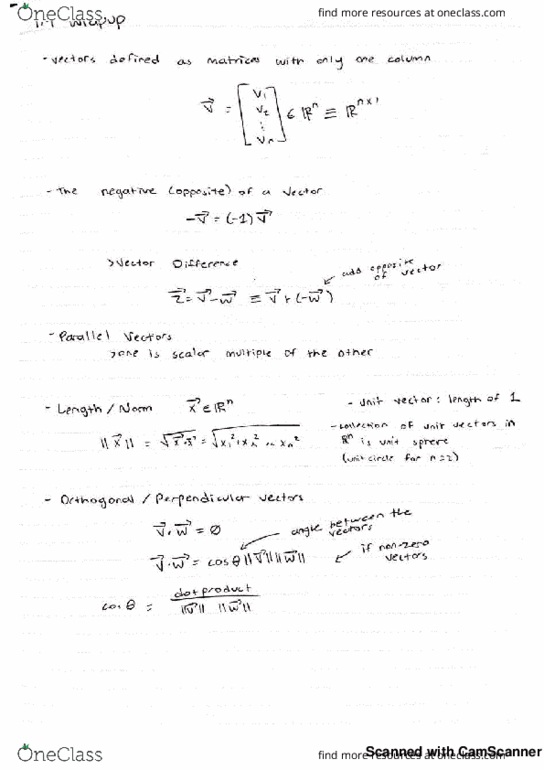 OneClass
find more resources at oneclass.com
wrapup
- vectors defined as matrices with only one column
v⃗ = [v₁ v₂ ⋮ vₙ] ∈ ℝⁿ ≡ ℝⁿˣ¹
- The negative (opposite) of a vector
-v⃗ = (-1)v⃗
> Vector Difference
add opposite of vector
z⃗ = v⃗ - w⃗ ≡ v⃗ + (-w⃗)
- Parallel Vectors
> one is scalar multiple of the other
- Length / Norm x⃗ ∈ ℝⁿ
- Unit vector: length of 1
||x⃗|| = √x⃗·x⃗ = √x₁²+x₂² ... xₙ²
- collection of unit vectors in
ℝⁿ is unit sphere
(unit circle for n=2)
- Orthogonal / Perpendicular vectors
v⃗·w⃗ = 0
angle between the vectors
v⃗·w⃗ = cosθ ||v⃗|| ||w⃗||
if non-zero vectors
cosθ = dot product / ||v⃗|| ||w⃗||
OneClass
find more resources at oneclass.com
Scanned with CamScanner